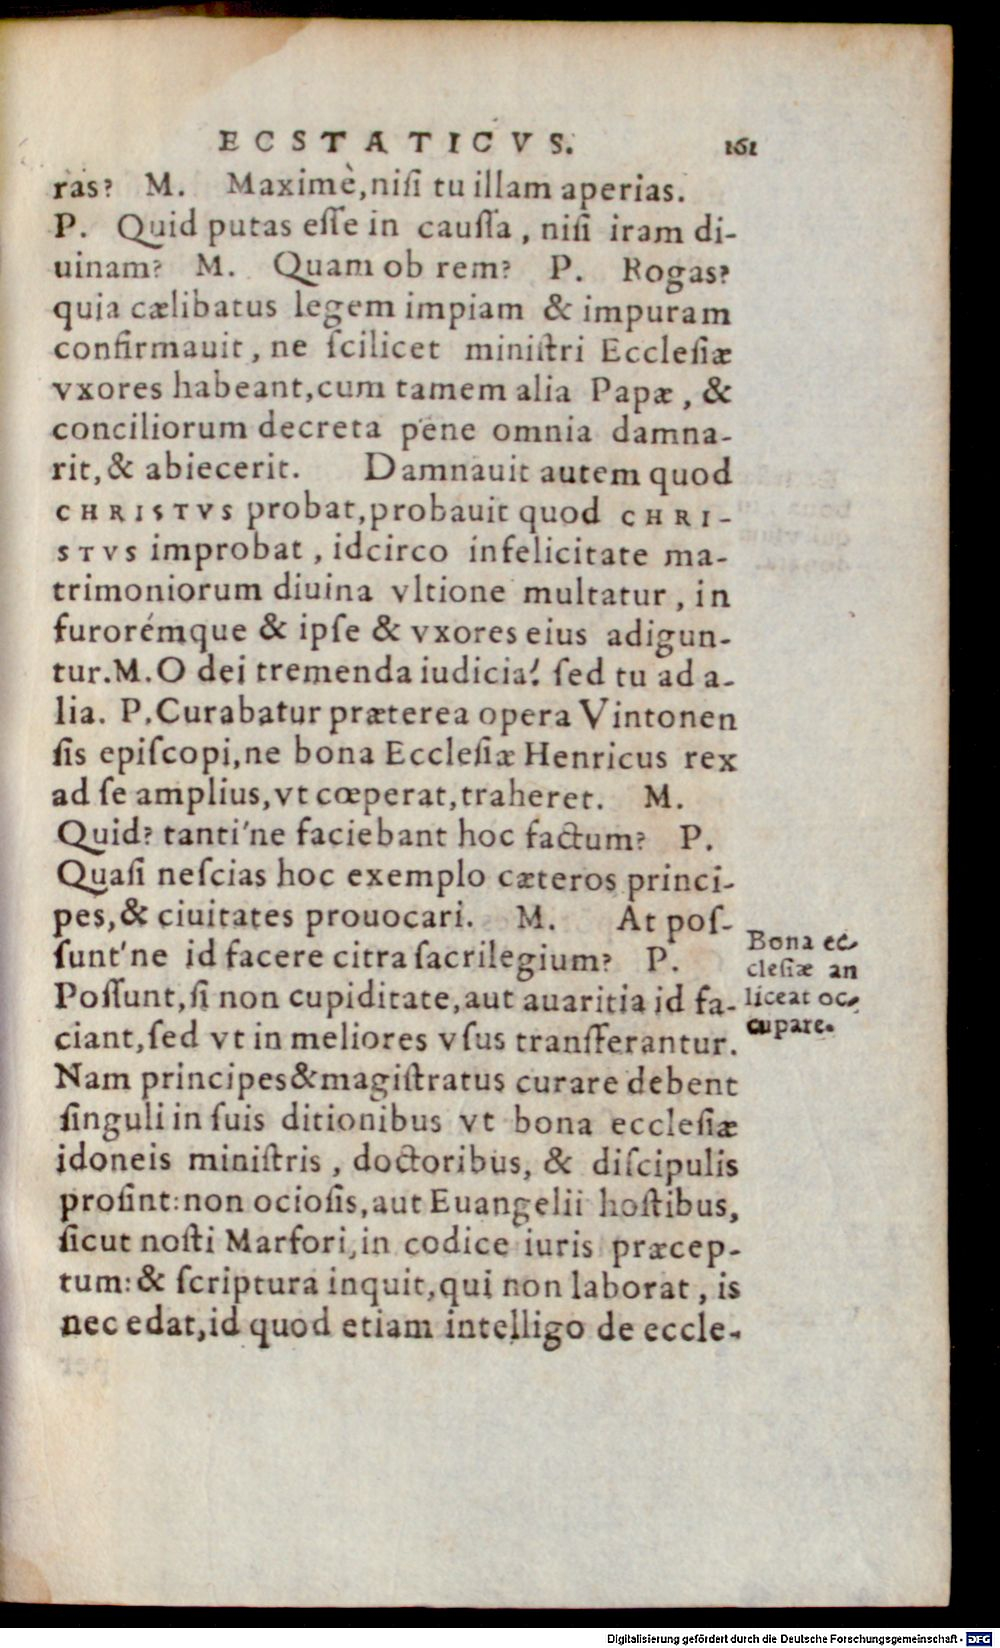 ECSTATICVS. 161
ras? M. Maximè, niſi tu illam aperias.
P. Quid putas eſſe in cauſſa, niſi iram di-
uinam? M. Quam ob rem? P. Rogas?
quia cælibatus legem impiam & impuram
confirmauit, ne ſcilicet miniſtri Eccleſiæ
vxores habeant, cum tamem alia Papæ, &
conciliorum decreta pene omnia damna-
rit, & abiecerit. Damnauit autem quod
CHRISTVS probat, probauit quod CHRI-
STVS improbat, idcirco infelicitate ma-
trimoniorum diuina vltione multatur, in
furorémque & ipſe & vxores eius adigun-
tur. M. O dei tremenda iudicia! ſed tu ad a-
lia. P. Curabatur præterea opera Vintonen
ſis epiſcopi, ne bona Eccleſiæ Henricus rex
ad ſe amplius, vt cœperat, traheret. M.
Quid? tanti'ne faciebant hoc factum? P.
Quaſi neſcias hoc exemplo cæteros princi-
pes, & ciuitates prouocari. M. At poſ-
ſunt'ne id facere citra ſacrilegium? P.
Poſſunt, ſi non cupiditate, aut auaritia id fa-
ciant, ſed vt in meliores vſus tranſferantur.
Nam principes & magiſtratus curare debent
ſinguli in ſuis ditionibus vt bona eccleſiæ
idoneis miniſtris, doctoribus, & diſcipulis
proſint: non ocioſis, aut Euangelii hoſtibus,
ſicut noſti Marfori, in codice iuris præcep-
tum: & ſcriptura inquit, qui non laborat, is
nec edat, id quod etiam intelligo de eccle-
Bona ec-
cleſiæ an
liceat oc-
cupare.
Digitalisierung gefördert durch die Deutsche Forschungsgemeinschaft - DFG